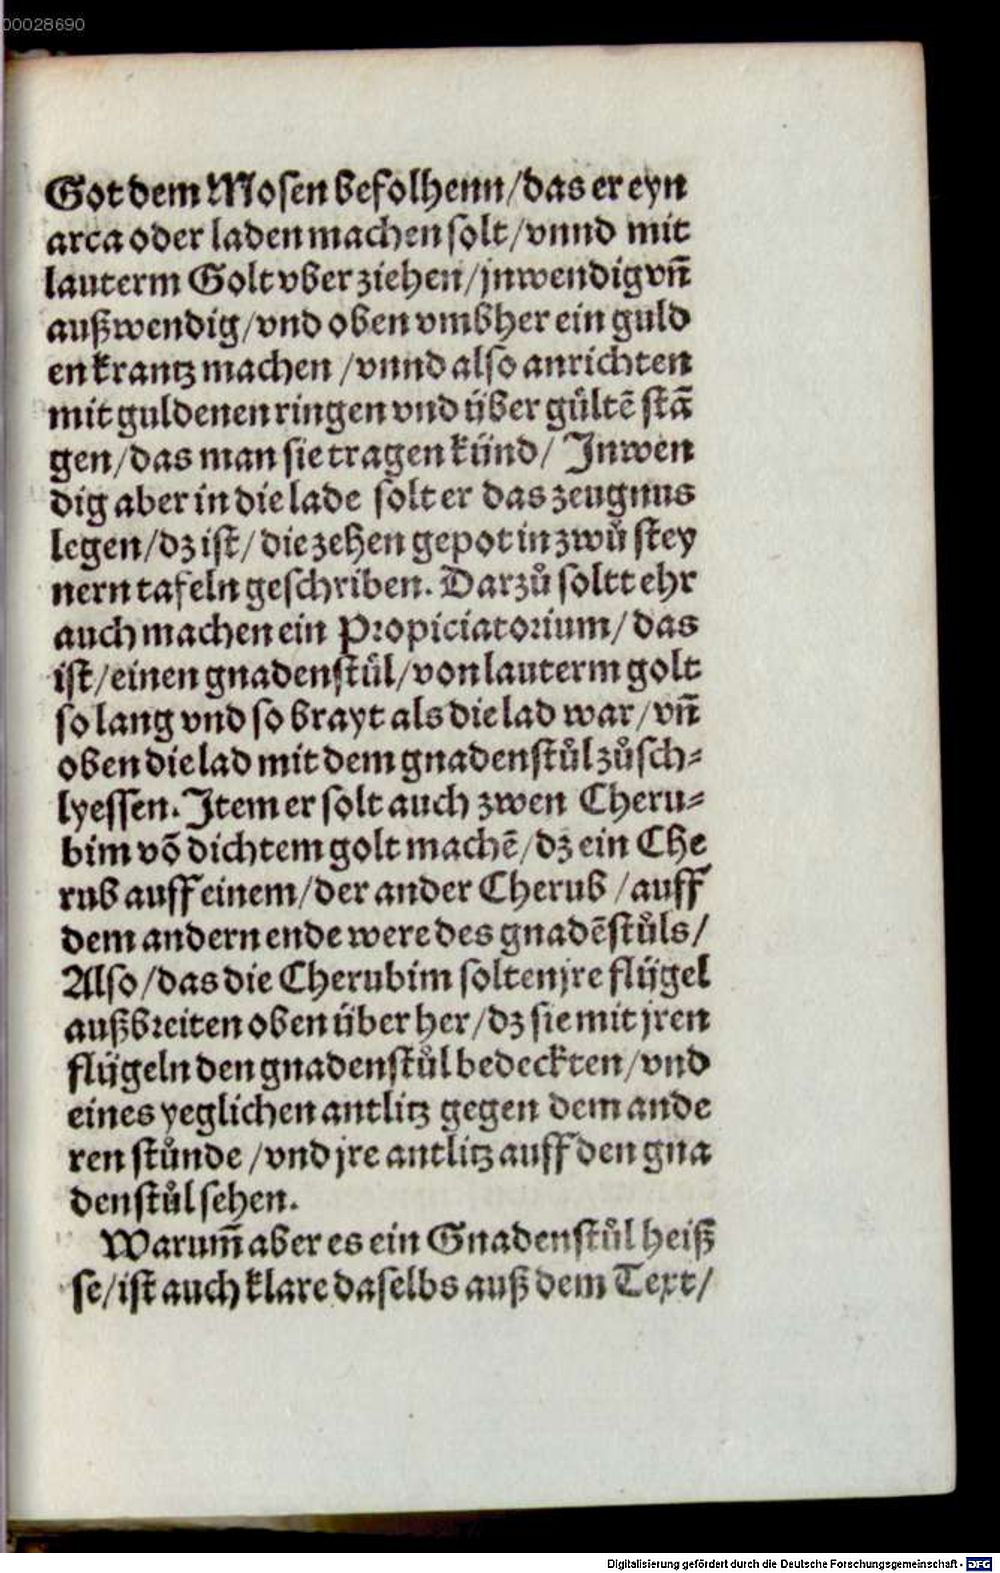 00028690
Got dem Mosen befolhenn/das er eyn
arca oder laden machen solt/vnnd mit
lauterm Golt vber ziehen/jnwendig vn̄
außwendig/vnd oben vmbher ein guld
en krantz machen/vnnd also anrichten
mit guldenen ringen vnd über gültē stā
gen/das man sie tragen künd/ Inwen
dig aber in die lade solt er das zeugnus
legen/dz ist/die zehen gepot in zwů stey
nern tafeln geschriben. Darzů soltt ehr
auch machen ein Propiciatorium/das
ist/einen gnadenstůl/von lauterm golt
so lang vnd so brayt als die lad war/vn̄
oben die lad mit dem gnadenstůl zůsch-
lyessen. Item er solt auch zwen Cheru-
bim vō dichtem golt machē/dz ein Che
rub auff einem/der ander Cherub/auff
dem andern ende were des gnadēstůls/
Also/das die Cherubim solten jre flügel
außbreiten oben über her/dz sie mit jren
flügeln den gnadenstůl bedeckten/vnd
eines yeglichen antlitz gegen dem ande
ren stůnde/vnd jre antlitz auff den gna
denstůl sehen.
Warum̄ aber es ein Gnadenstůl heiß
se/ist auch klare daselbs auß dem Text/
Digitalisierung gefördert durch die Deutsche Forschungsgemeinschaft - DFG